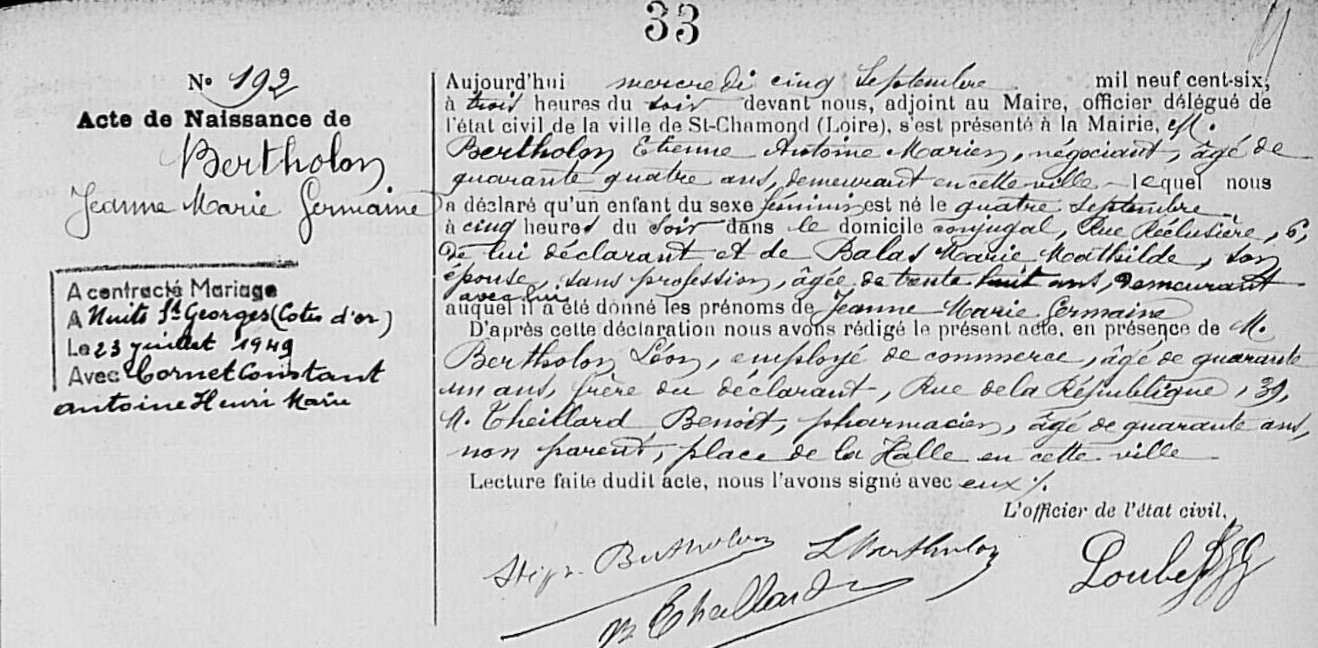 33
N° 192
Acte de Naissance de
Bertholon
Jeanne Marie Germaine
A contracté Mariage
A Nuits St Georges (Cotes d'or)
Le 23 juillet 1949
Avec Cornet Constant
antoine Henri Marie
Aujourd'hui mercredi cinq Septembre mil neuf cent-six,
à trois heures du soir devant nous, adjoint au Maire, officier délégué de
l'état civil de la ville de St-Chamond (Loire), s'est présenté à la Mairie, M.
Bertholon Etienne Antoine Marien, négociant, âgé de
quarante quatre ans, demeurant en cette ville lequel nous
a déclaré qu'un enfant du sexe féminin est né le quatre septembre
à cinq heures du soir dans le domicile conjugal, Rue Réclusière, 6,
de lui déclarant et de Balas Marie Mathilde, son
épouse, sans profession, âgée de trente huit ans, demeurant
avec lui
auquel il a été donné les prénoms de Jeanne Marie Germaine
D'après cette déclaration nous avons rédigé le présent acte, en présence de M.
Bertholon Léon, employé de commerce, âgé de quarante
un ans, frère du déclarant, Rue de la République, 39,
M. Theillard Benoit, pharmacien, âgé de quarante ans,
non parent, place de la Halle en cette ville
Lecture faite dudit acte, nous l'avons signé avec eux ./.
L'officier de l'état civil,
Bertholon L Bertholon
B Theillard